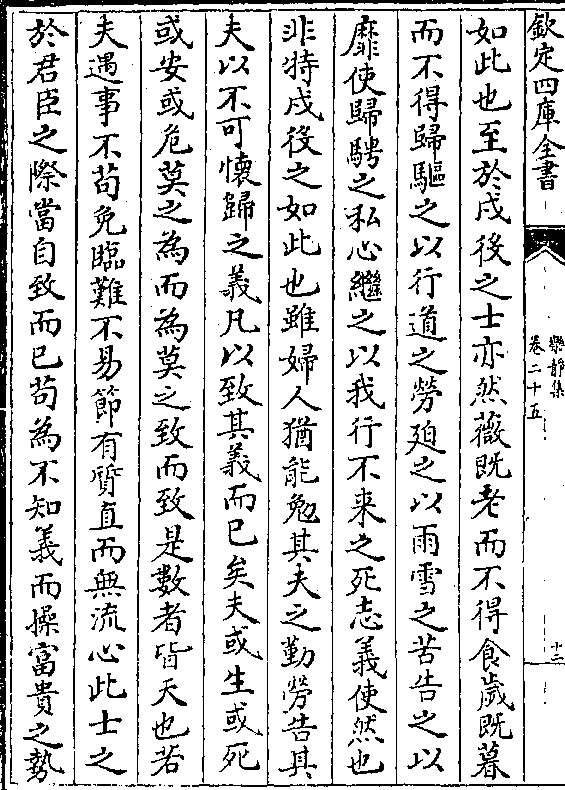 欽定四庫全書
樂靜集
卷二十五
十二
如此也至於戍役之士亦然薇既老而不得食歲既暮
而不得歸驅之以行道之勞廹之以雨雪之苦告之以
靡使歸騁之私心繼之以我行不来之死志義使然也
非特戍役之如此也雖婦人猶能勉其夫之勤勞告其
夫以不可懷歸之義凡以致其義而已矣夫或生或死
或安或危莫之為而為莫之致而致是數者皆天也若
夫遇事不苟免臨難不易節有質直而無流心此士之
於君臣之際當自致而已苟為不知義而操富貴之勢